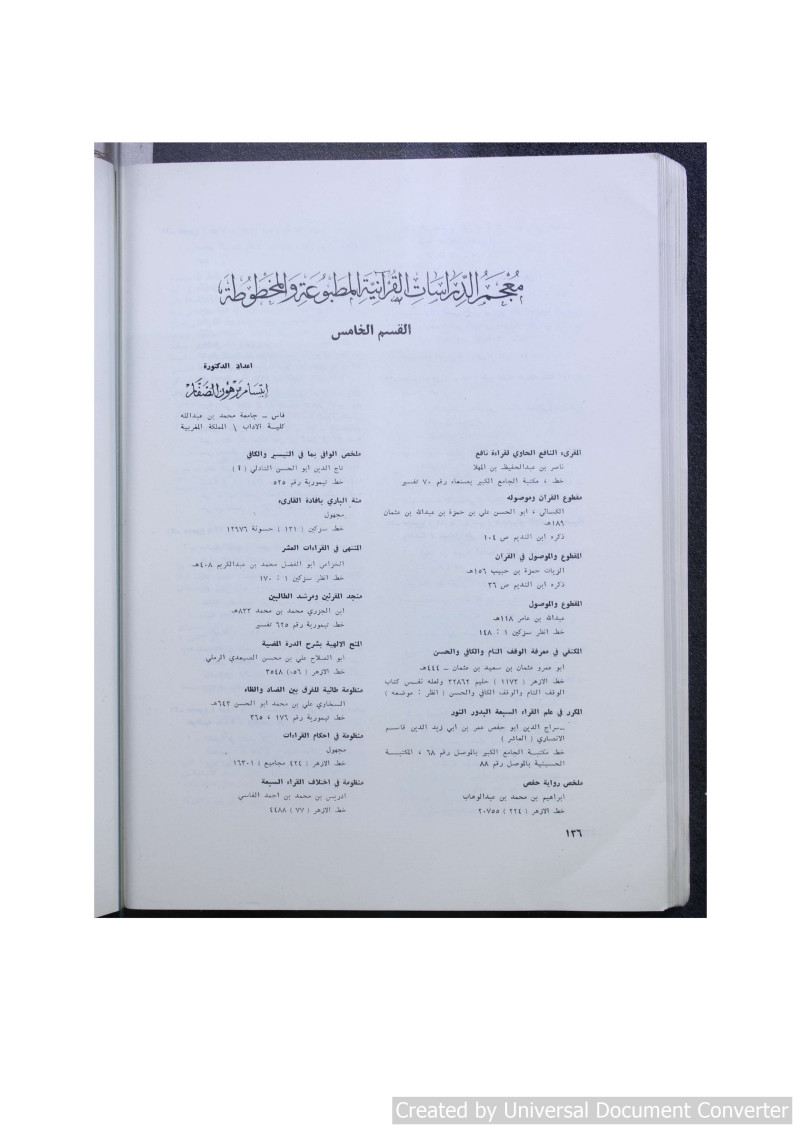 معجم الدراسات القرآنية المطبوعة والمخطوطة
القسم الخامس
اعداد الدكتورة
ابتسام مرهون الصفار
فاس ــ جامعة محمد بن عبدالله
كليــة الآداب \ المملكة المغربية
المقرىء النافع الحاوي لقراءة نافع
ناصر بن عبدالحفيظ بن المهلا
خط ، مكتبة الجامع الكبير بصنعاء رقم ٧٠ تفسير
مقطوع القرآن وموصوله
الكسائي ، ابو الحسن علي بن حمزة بن عبدالله بن عثمان
١٨٦هـ
ذكره ابن النديم ص ١٠٤
المقطوع والموصول في القرآن
الزيات حمزة بن حبيب ١٥٦هـ
ذكره ابن النديم ص ٣٦
المقطوع والموصول
عبدالله بن عامر ١١٨هـ
خط انظر سزكين ١ : ١٤٨
المكتفي في معرفة الوقف التام والكافي والحسن
ابو عمرو عثمان بن سعيد بن عثمان ــ ٤٤٤هـ
خط الازهر ( ١١٧٣ ) حليم ٣٢٨٦٢ ولعله نفس كتاب
الوقف التام والوقف الكافي والحسن ( انظر : موضعه )
المكرر في علم القراء السبعة البدور النور
ــسراج الدين ابو حفص عمر بن ابي زيد الدين قاسم
الانصاري ( العاشر )
خط مكتبــة الجامع الكبير بالموصل رقم ٦٨ ، المكتبــة
الحسينية بالموصل رقم ٨٨
ملخص رواية حفص
ابراهيم بن محمد بن عبدالوهاب
خط الازهر ( ٢٢٤ ) ٢٠٧٥٥
ملخص الوافي بما في التيسير والكافي
تاج الدين ابو الحسن التادلي ( ؟ )
خط تيمورية رقم ٥٢٥
منة الباري بافادة القارىء
مجهول
خط سزكين ( ١٣١ ) حسونة ١٢٦٧٦
المنتهى في القراءات العشر
الخزاعي ابو الفضل محمد بن عبدالكريم ٤٠٨هـ
خط انظر سزكين ١ : ١٧٠
منجد المقرئين ومرشد الطالبين
ابن الجزري محمد بن محمد ٨٣٣هـ
خط تيمورية رقم ٦٢٥ تفسير
المنح الالهية بشرح الدرة المضية
ابو الصلاح علي بن محسن الصعيدي الرملي
خط الازهر (٠٥٦) ٣٥٤٨
منظومة طائية للفرق بين الضاد والظاء
السخاوي علي بن محمد ابو الحسن ٦٤٣هـ
خط تيمورية رقم ١٧٦ ، ٣٦٥
منظومة في احكام القراءات
مجهول
خط الازهر ( ٤٢٤ مجاميع ) ١٦٣٠١
منظومة في اختلاف القراء السبعة
ادريس بن محمد بن احمد الفاسي
خط الازهر ( ٧٧ ) ٤٤٨٨
١٣٦
Created by Universal Document Converter